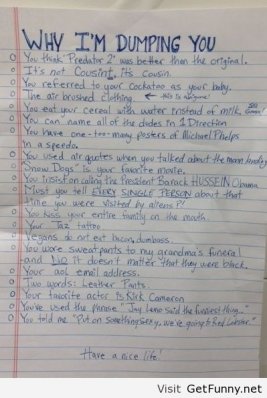 WHY I'M DUMPING YOU
You think "Predator 2" was better than the original.
It's not Cousint, its Cousin.
You referred to your Cockatoo as your baby.
The air brushed clothing. ← this is awesome!
You eat your cereal with water instead of milk.
You can name all of the dudes in 1 Direction
You have one-too-many posters of Michael Phelps
in a speedo.
You used air quotes when you talked about the moon landing
"Snow Dogs" is your favorite movie.
You insist on calling the President Barack HUSSEIN Obama
Must you tell EVERY SINGLE PERSON about that
time you were visited by aliens?!
You kiss your entire family on the mouth.
Your Taz tattoo
Vegans do not eat bacon, dumbass.
You wore sweatpants to my grandma's funeral
and NO it doesn't matter that they were black.
Your aol email address.
Two words: Leather Pants.
Your favorite actor is Kirk Cameron
You've used the phrase "Jay Leno said the funniest thing..."
You told me "Put on something Sexy, we're going to Red Lobster."
Have a nice life!
Visit GetFunny.net